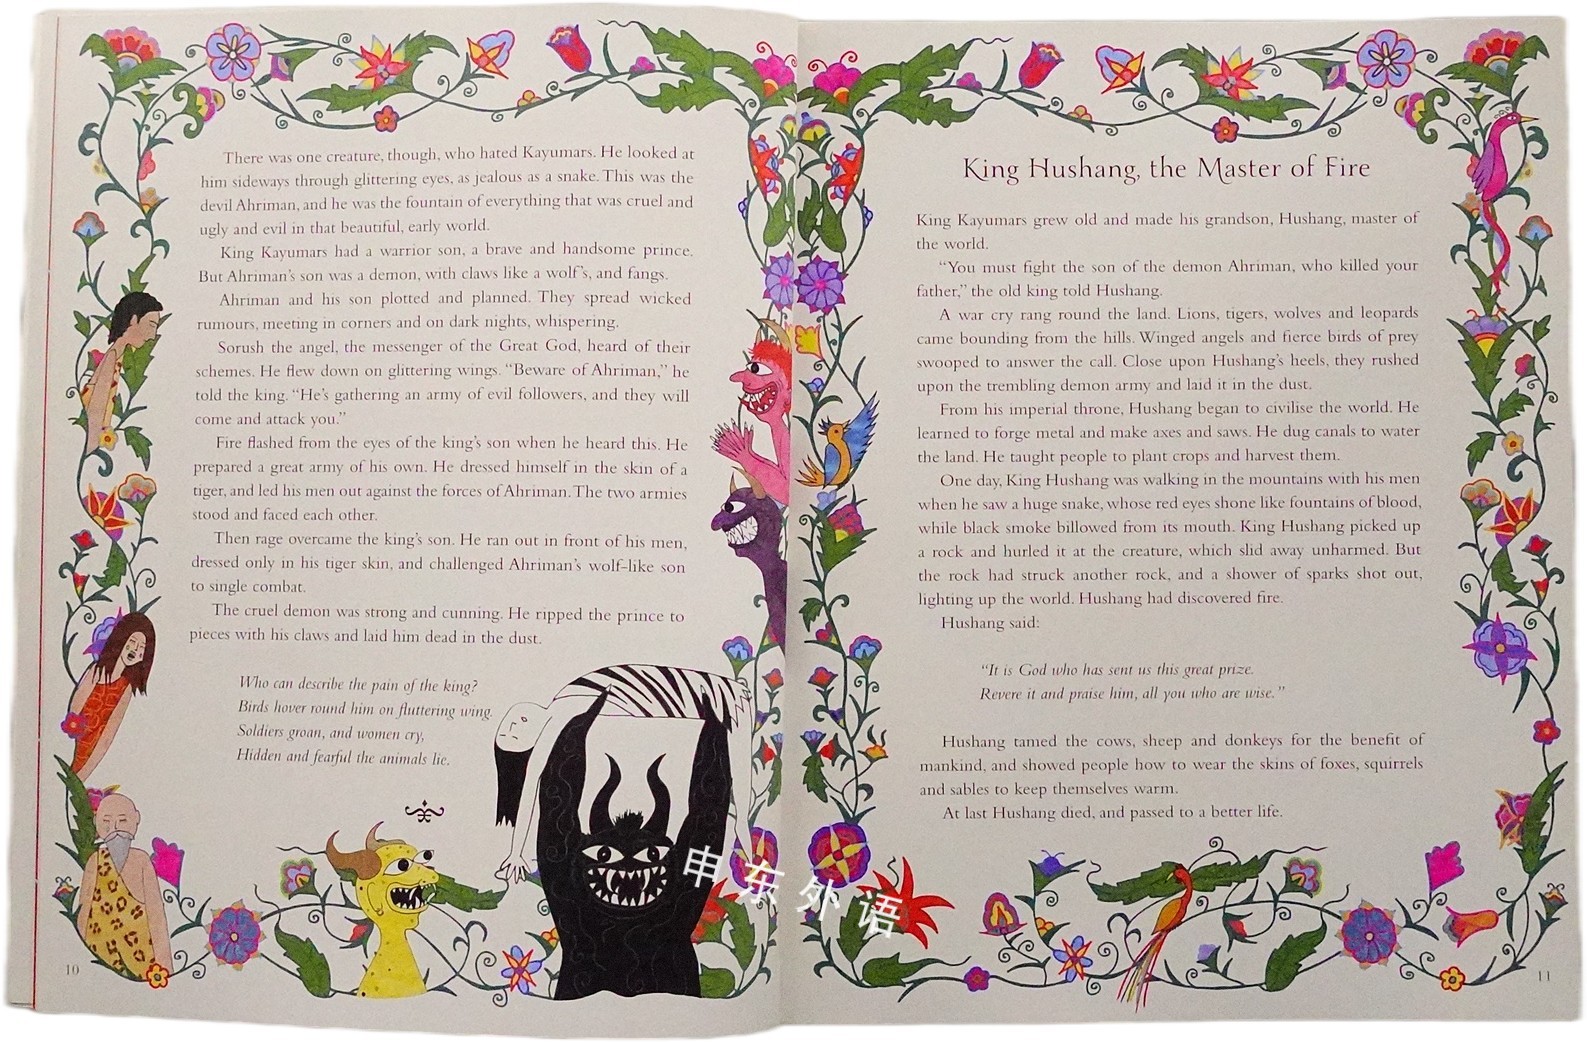 There was one creature, though, who hated Kayumars. He looked at
him sideways through glittering eyes, as jealous as a snake. This was the
devil Ahriman, and he was the fountain of everything that was cruel and
ugly and evil in that beautiful, early world.
King Kayumars had a warrior son, a brave and handsome prince.
But Ahriman's son was a demon, with claws like a wolf's, and fangs.
Ahriman and his son plotted and planned. They spread wicked
rumours, meeting in corners and on dark nights, whispering.
Sorush the angel, the messenger of the Great God, heard of their
schemes. He flew down on glittering wings. “Beware of Ahriman,” he
told the king. “He's gathering an army of evil followers, and they will
come and attack you.”
Fire flashed from the eyes of the king's son when he heard this. He
prepared a great army of his own. He dressed himself in the skin of a
tiger, and led his men out against the forces of Ahriman. The two armies
stood and faced each other.
Then rage overcame the king's son. He ran out in front of his men,
dressed only in his tiger skin, and challenged Ahriman's wolf-like son
to single combat.
The cruel demon was strong and cunning. He ripped the prince to
pieces with his claws and laid him dead in the dust.
Who can describe the pain of the king?
Birds hover round him on fluttering wing.
Soldiers groan, and women cry,
Hidden and fearful the animals lie.
10
King Hushang, the Master of Fire
King Kayumars grew old and made his grandson, Hushang, master of
the world.
“You must fight the son of the demon Ahriman, who killed your
father,” the old king told Hushang.
A war cry rang round the land. Lions, tigers, wolves and leopards
came bounding from the hills. Winged angels and fierce birds of prey
swooped to answer the call. Close upon Hushang's heels, they rushed
upon the trembling demon army and laid it in the dust.
From his imperial throne, Hushang began to civilise the world. He
learned to forge metal and make axes and saws. He dug canals to water
the land. He taught people to plant crops and harvest them.
One day, King Hushang was walking in the mountains with his men
when he saw a huge snake, whose red eyes shone like fountains of blood,
while black smoke billowed from its mouth. King Hushang picked up
a rock and hurled it at the creature, which slid away unharmed. But
the rock had struck another rock, and a shower of sparks shot out,
lighting up the world. Hushang had discovered fire.
Hushang said:
“It is God who has sent us this great prize.
Revere it and praise him, all you who are wise.”
Hushang tamed the cows, sheep and donkeys for the benefit of
mankind, and showed people how to wear the skins of foxes, squirrels
and sables to keep themselves warm.
At last Hushang died, and passed to a better life.
11
申东外语